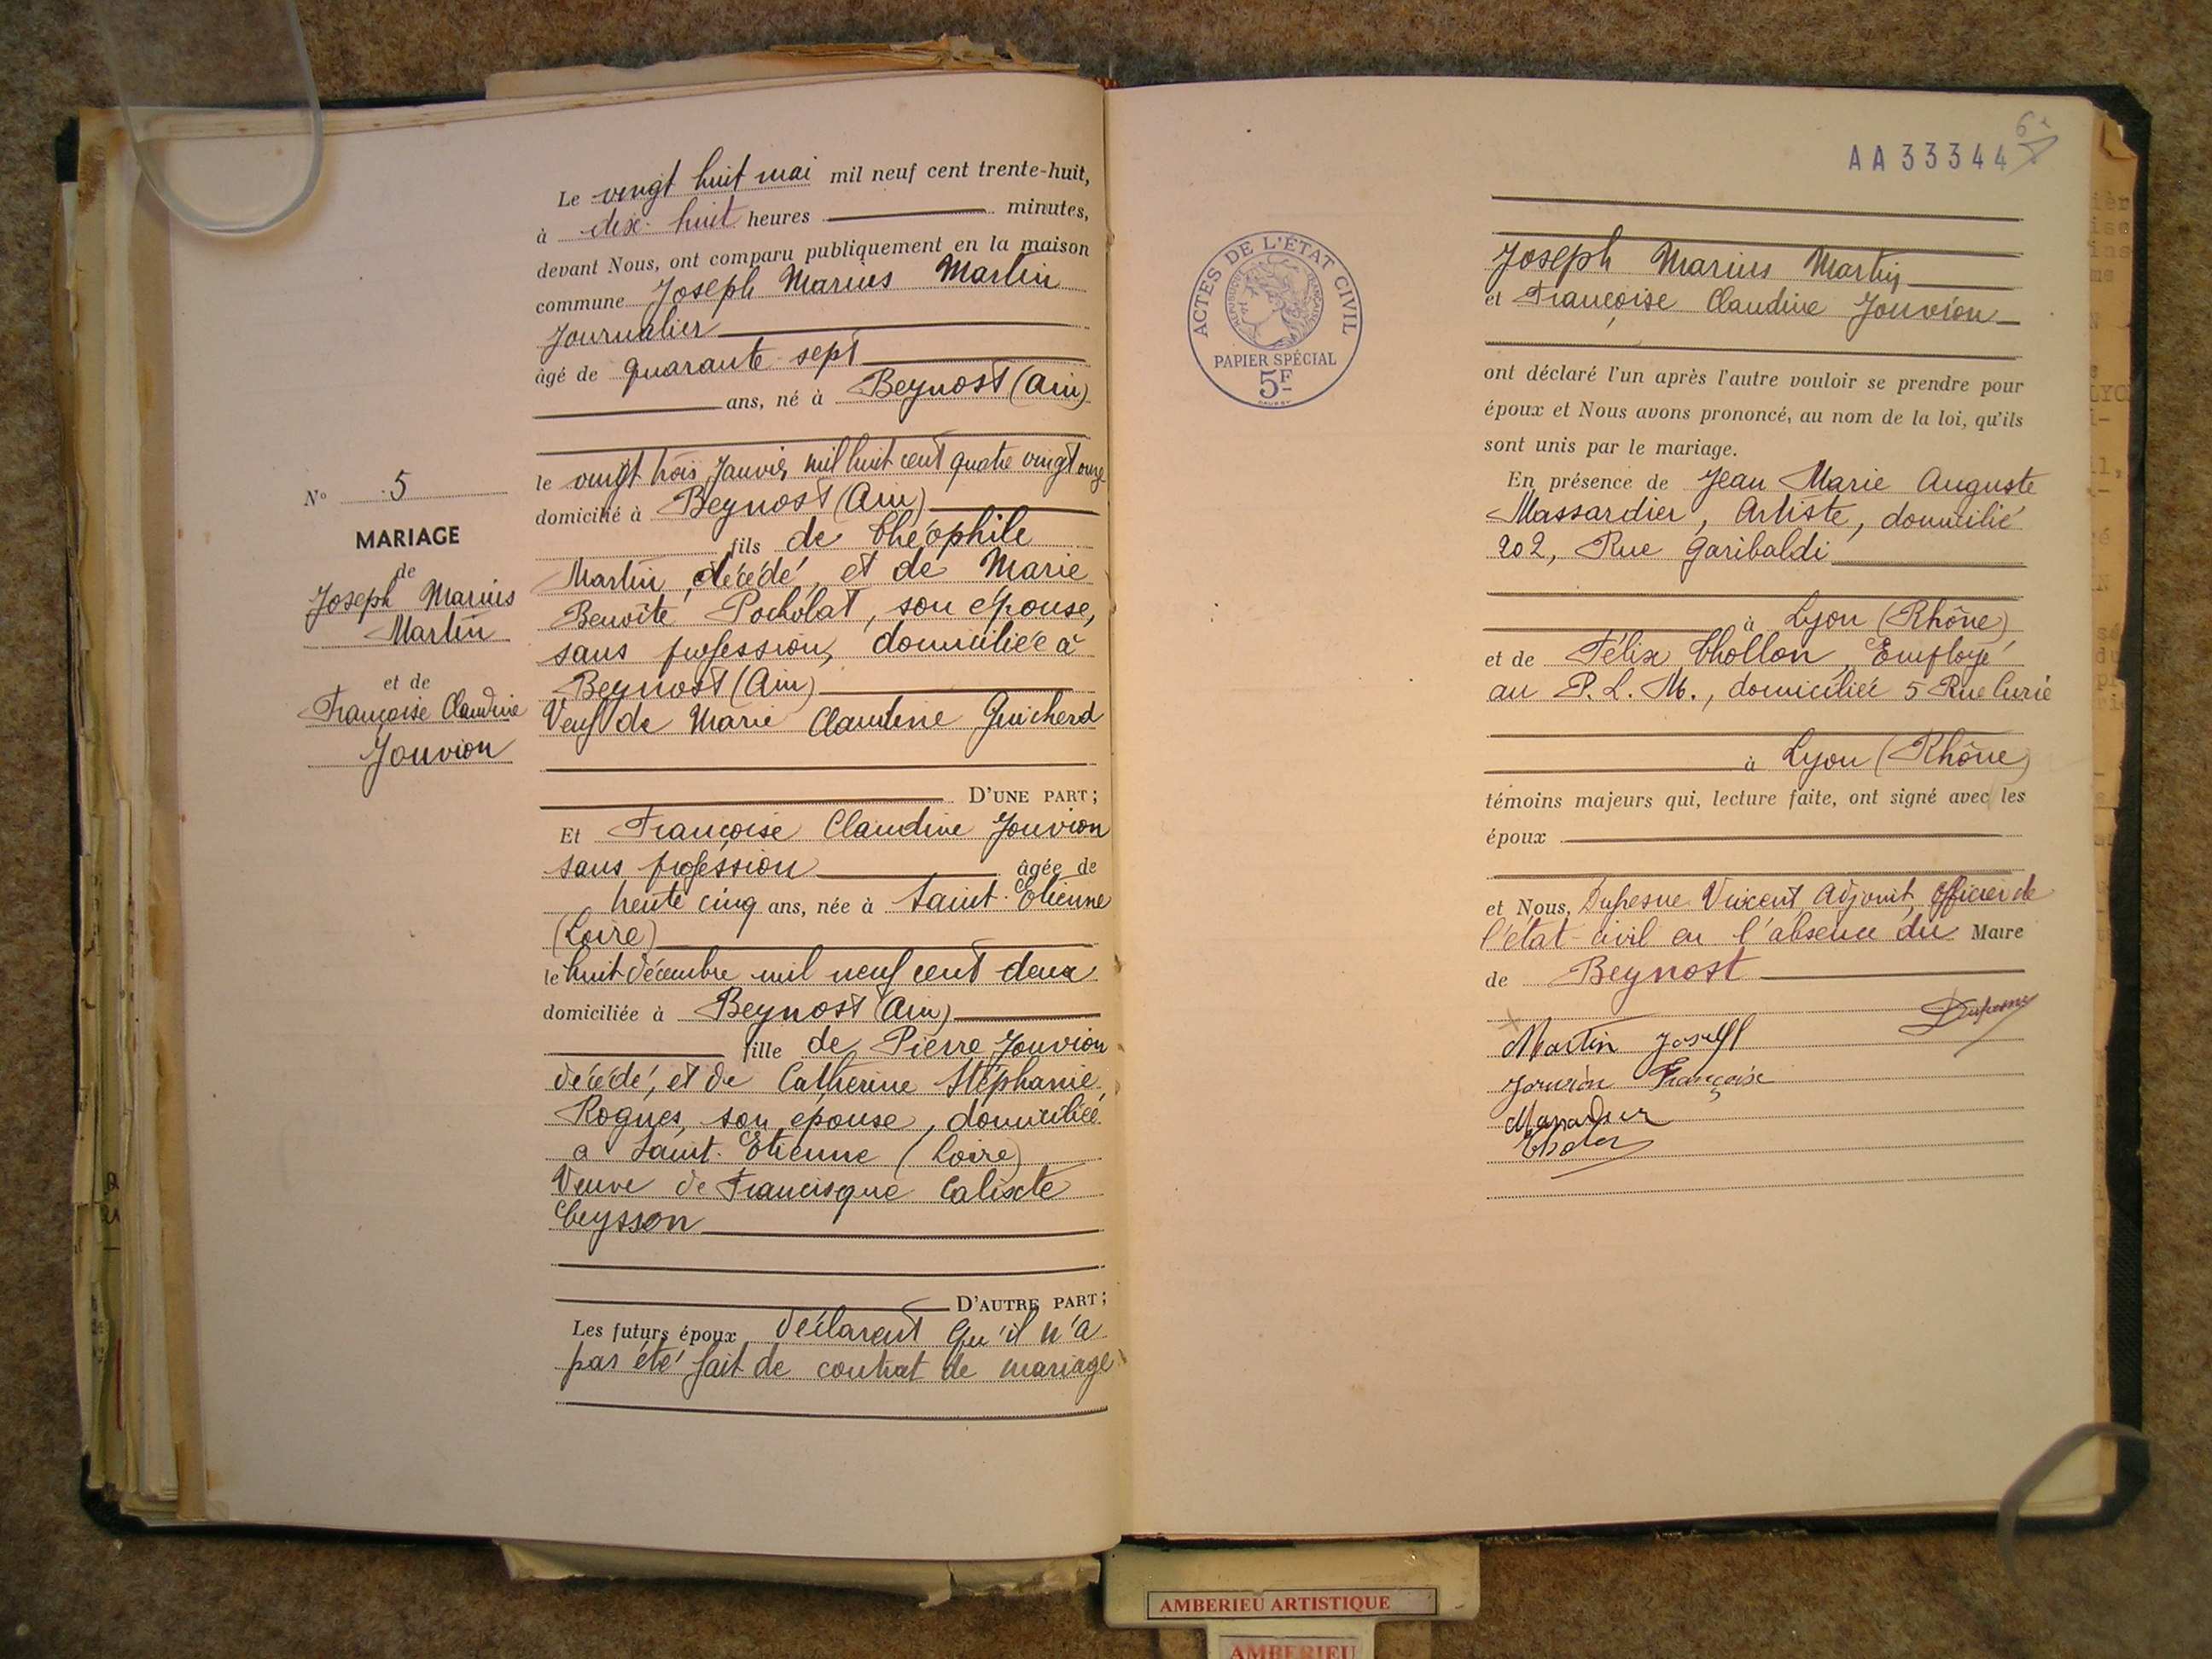 Le vingt huit mai mil neuf cent trente-huit,
à dix-huit heures minutes,
devant Nous, ont comparu publiquement en la maison
commune Joseph Marius Martin
Journalier
âgé de quarante sept
ans, né à Beynost (Ain)
le vingt trois Janvier mil huit cent quatre vingt onze
domicilié à Beynost (Ain)
fils de Théophile
Martin, décédé, et de Marie
Benoîte Pocholat, son épouse,
sans profession, domiciliée à
Beynost (Ain)
Veuf de Marie Claudine Guicherd
D'UNE PART;
Et Françoise Claudine Jouvion
sans profession âgée de
trente cinq ans, née à Saint-Etienne
(Loire)
le huit décembre mil neuf cent deux
domiciliée à Beynost (Ain)
fille de Pierre Jouvion
décédé, et de Catherine Stéphanie
Rognes, son épouse, domiciliée
a Saint-Etienne (Loire)
Veuve de Francisque Calixte
Ceysson
D'AUTRE PART;
Les futurs époux déclarent qu'il n'a
pas été fait de contrat de mariage
N° 5
MARIAGE
de
Joseph Marius
Martin
et de
Françoise Claudine
Jouvion
AA33344
ACTES DE L'ÉTAT CIVIL
RÉPUBLIQUE FRANÇAISE
PAPIER SPÉCIAL
5F
Joseph Marius Martin
et Françoise Claudine Jouvion
ont déclaré l'un après l'autre vouloir se prendre pour
époux et Nous avons prononcé, au nom de la loi, qu'ils
sont unis par le mariage.
En présence de Jean Marie Auguste
Massardier, Artiste, domicilié
202, Rue Garibaldi
à Lyon (Rhône)
et de Félix Chollon, Employé
au P.L.M., domiciliée 5 Rue Curie
à Lyon (Rhône)
témoins majeurs qui, lecture faite, ont signé avec les
époux
et Nous, Dufresne Vincent Adjoint, officier de
l'état-civil en l'absence du Maire
de Beynost
Dufresne
Martin Joseph
Jouvion Françoise
AMBERIEU ARTISTIQUE
AMBERIEU